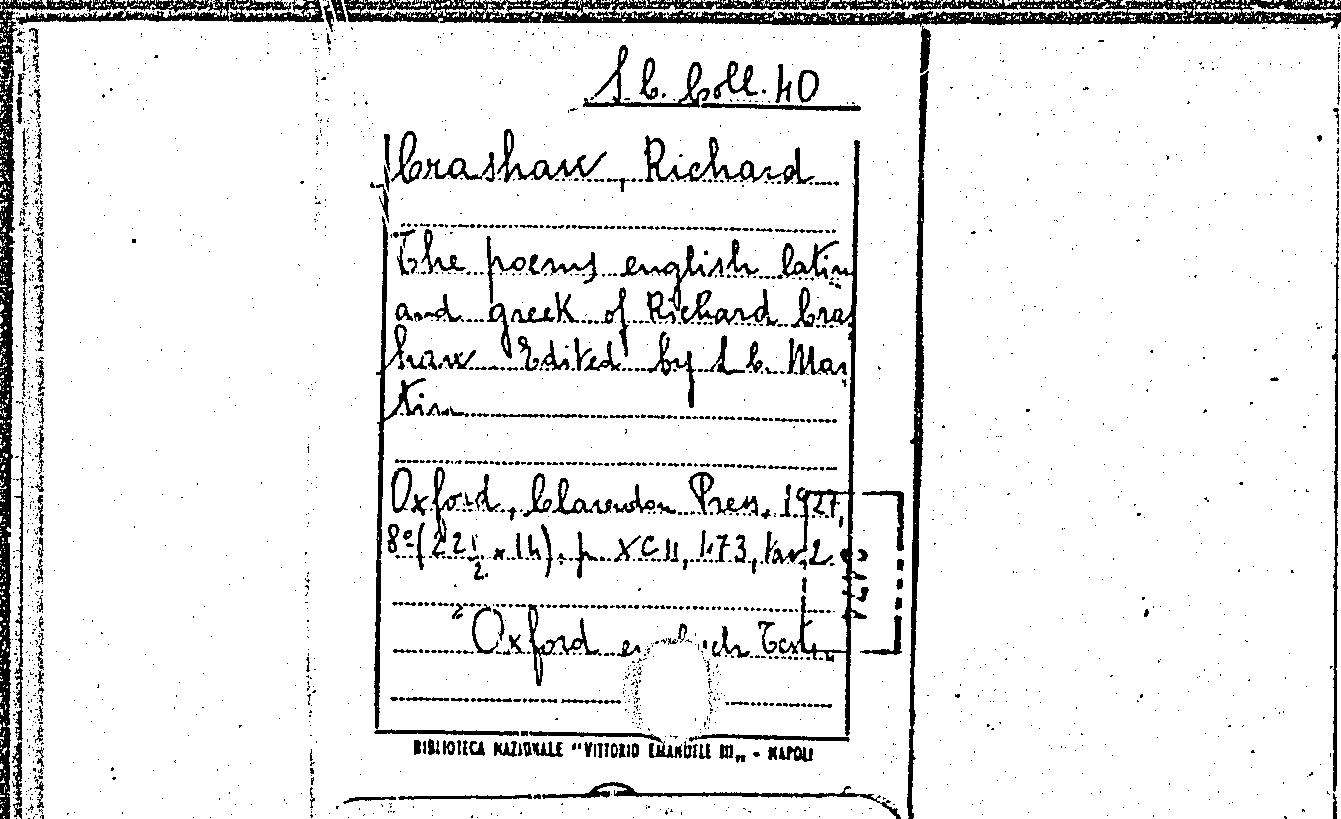 S.C. Coll. 40
Crashaw, Richard
The poems english latin
and greek of Richard Cras
haw. Edited by L. C. Mar
tin
Oxford, Clarendon Press, 1927,
8º (22 1/2 x 14). p. XCII, 473, tav. 2.
"Oxford english Texts„
BIBLIOTECA NAZIONALE "VITTORIO EMANUELE III„ - NAPOLI